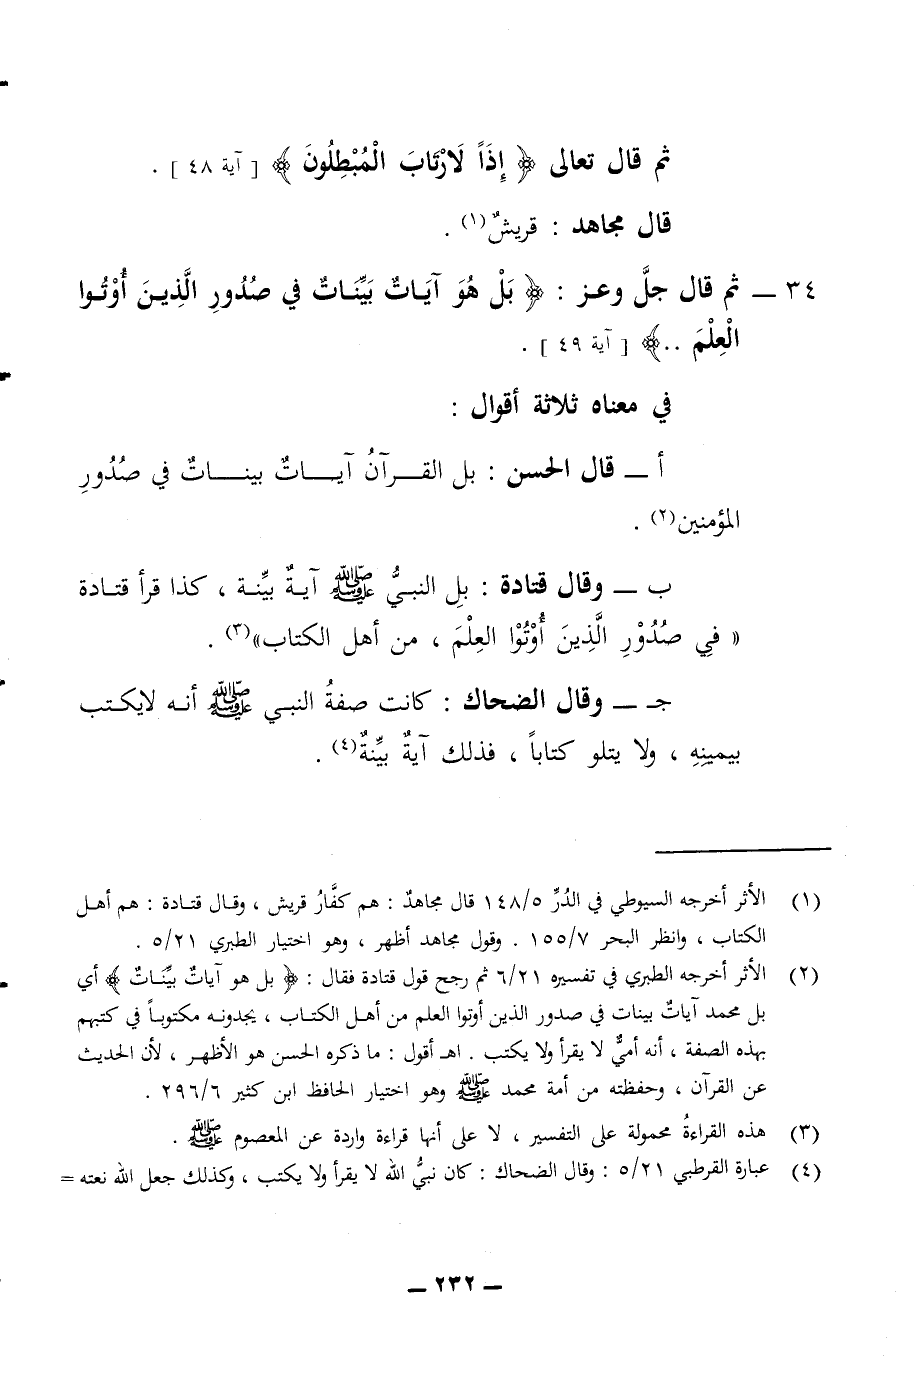 ثم قال تعالى ﴿ إِذَاً لَارْتَابَ الْمُبْطِلُونَ ﴾ [ آية ٤٨ ] .
قال مجاهد : قريشٌ(١) .
٣٤ ــ ثم قال جلَّ وعـز : ﴿ بَلْ هُوَ آيَـاتٌ بَيِّنَـاتٌ فِي صُدُورِ الَّذِيـنَ أُوْتُـوا
الْعِلْمَ ..﴾ [ آية ٤٩ ] .
في معناه ثلاثة أقوال :
أ ــ قال الحسن : بل القـــرآنُ آيـــاتٌ بينـــاتٌ في صُدُورِ
المؤمنين(٢) .
ب ــ وقال قتادة : بلِ النبيُّ ﷺ آيـةٌ بيِّنـة ، كذا قرأ قتـادة
« فِي صُدُوْرِ الَّذِينَ أُوْتُوْا العِلْمَ ، من أهل الكتاب»(٣) .
جـ ــ وقال الضحاك : كانت صفةُ النبـي ﷺ أنـه لايكتـب
بيمينِهِ ، ولا يتلو كتاباً ، فذلك آيةٌ بيِّنةٌ(٤) .
(١) الأثر أخرجه السيوطي في الدُرِّ ١٤٨/٥ قال مجاهدٌ : هم كفَّارُ قريش ، وقـال قتـادة : هم أهـل
الكتاب ، وانظر البحر ١٥٥/٧ . وقول مجاهد أظهر ، وهو اختيار الطبري ٥/٢١ .
(٢) الأثر أخرجه الطبري في تفسيره ٦/٢١ ثم رجح قول قتادة فقال : ﴿ بل هو آياتٌ بيِّنَـاتٌ ﴾ أي
بل محمد آياتٌ بينات في صدور الذين أوتوا العلم من أهـل الكتـاب ، يجدونـه مكتوبـاً في كتبهم
بهذه الصفة ، أنه أميٌّ لا يقرأ ولا يكتب . اهـ أقول : ما ذكره الحسن هو الأظهـر ، لأن الحديث
عن القرآن ، وحفظته من أمة محمد ﷺ وهو اختيار الحافظ ابن كثير ٢٩٦/٦ .
(٣) هذه القراءةُ محمولة على التفسير ، لا على أنها قراءة واردة عن المعصوم ﷺ .
(٤) عبارة القرطبي ٥/٢١ : وقال الضحاك : كان نبيُّ الله لا يقرأ ولا يكتب ، وكذلك جعل الله نعته =
ــ ٢٣٢ ــ